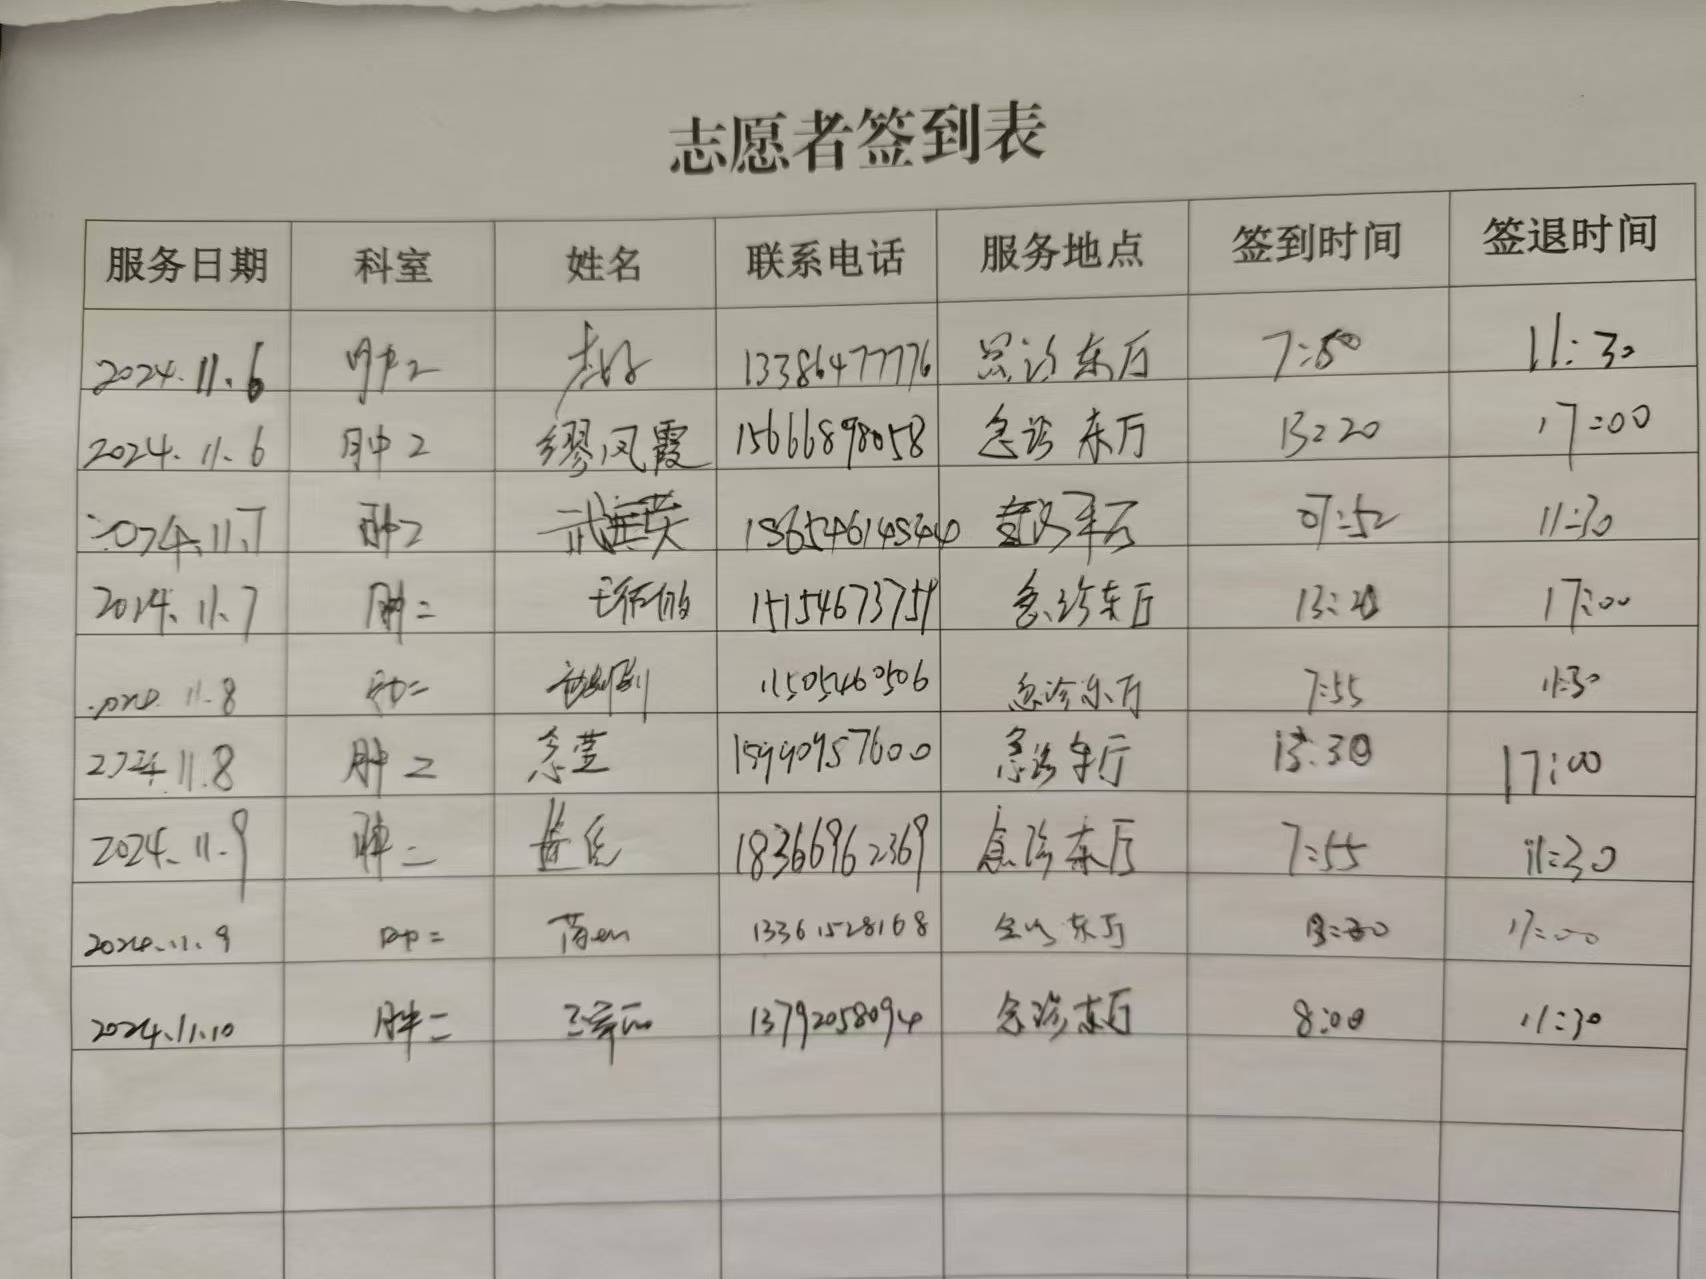 志愿者签到表
服务日期 科室 姓名 联系电话 服务地点 签到时间 签退时间
2024.11.6 肿2 13386477776 急诊东厅 7:50 11:30
2024.11.6 肿2 缪凤霞 15666898058 急诊东厅 13:20 17:00
2024.11.7 肿2 武 急诊东厅 07:52 11:30
2024.11.7 肿二 15154673759 急诊东厅 13:20 17:00
2024.11.8 肿二 急诊东厅 7:55 11:30
2024.11.8 肿2 急诊东厅 13:30 17:00
2024.11.9 肿二 18366962369 急诊东厅 7:55 11:30
2024.11.9 肿二 13361528168 急诊东厅 13:30 17:00
2024.11.10 肿二 13792058094 急诊东厅 8:00 11:30